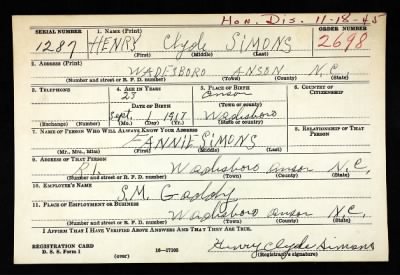 Hon. Dis. 11-18-45
SERIAL NUMBER 1. NAME (Print) ORDER NUMBER
1287 HENRY Clyde SIMONS 2698
(First) (Middle) (Last)
2. ADDRESS (Print)
WADESBORO ANSON N.C.
(Number and street or R. F. D. number) (Town) (County) (State)
3. TELEPHONE 4. AGE IN YEARS 5. PLACE OF BIRTH 6. COUNTRY OF CITIZENSHIP
23 Anson
DATE OF BIRTH (Town or county)
Sept. 1917 Wadesboro
(Exchange) (Number) (Mo.) (Day) (Yr.) (State or country)
7. NAME OF PERSON WHO WILL ALWAYS KNOW YOUR ADDRESS 8. RELATIONSHIP OF THAT PERSON
FANNIE SIMONS
(Mr., Mrs., Miss) (First) (Middle) (Last)
9. ADDRESS OF THAT PERSON
Wadesboro Anson N.C.
(Number and street or R. F. D. number) (Town) (County) (State)
10. EMPLOYER'S NAME
S.M. Gaddy
11. PLACE OF EMPLOYMENT OR BUSINESS
Wadesboro Anson N.C.
(Number and street or R. F. D. number) (Town) (County) (State)
I AFFIRM THAT I HAVE VERIFIED ABOVE ANSWERS AND THAT THEY ARE TRUE.
REGISTRATION CARD
D. S. S. Form 1 16-17105 Henry Clyde Simons
(Registrant's signature)